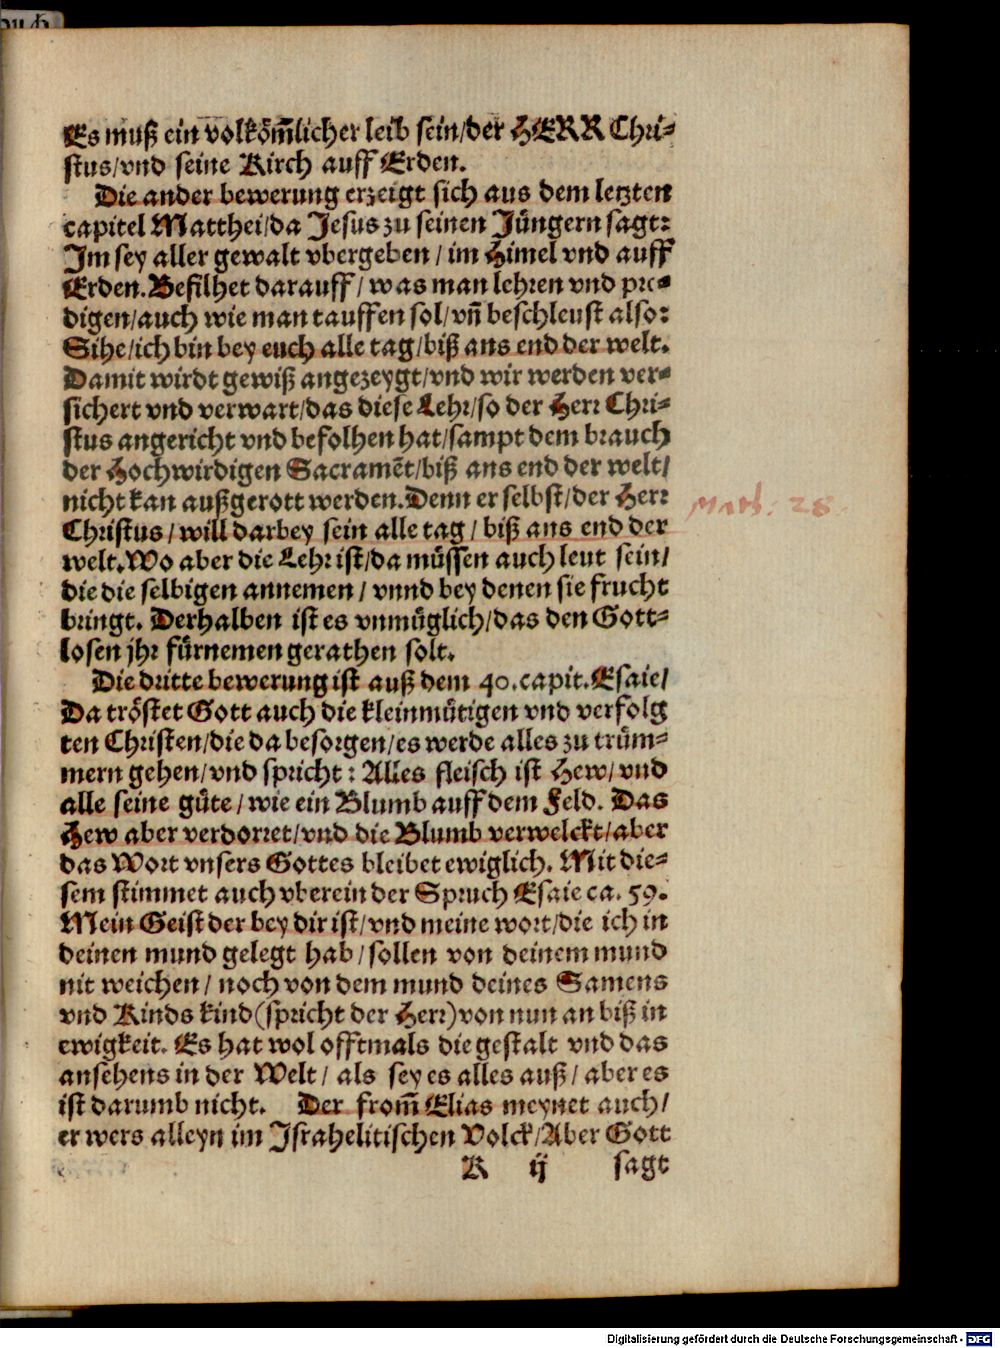 Es muß ein volkom̃licher leib sein/der HERR Chri-
stus/vnd seine Kirch auff Erden.
Die ander bewerung erzeigt sich aus dem letzten
capitel Matthei/da Jesus zu seinen Jüngern sagt:
Im sey aller gewalt vbergeben / im Himel vnd auff
Erden. Befilhet darauff / was man lehren vnd pre-
digen/auch wie man tauffen sol/vñ beschleust also:
Sihe/ich bin bey euch alle tag/biß ans end der welt.
Damit wirdt gewiß angezeygt/vnd wir werden ver-
sichert vnd verwart/das diese Lehr/so der Herr Chri-
stus angericht vnd befolhen hat/sampt dem brauch
der Hochwirdigen Sacramēt/biß ans end der welt/
nicht kan außgerott werden. Denn er selbst/der Herr
Christus / will darbey sein alle tag / biß ans end der
welt. Wo aber die Lehr ist/da müssen auch leut sein/
die die selbigen annemen / vnnd bey denen sie frucht
bringt. Derhalben ist es vnmüglich/das den Gott-
losen jhr fürnemen gerathen solt.
Die dritte bewerung ist auß dem 40. capit. Esaie/
Da tröstet Gott auch die kleinmütigen vnd verfolg
ten Christen/die da besorgen/es werde alles zu trüm-
mern gehen/vnd spricht: Alles fleisch ist Hew/vnd
alle seine güte / wie ein Blumb auff dem Feld. Das
Hew aber verdorret/vnd die Blumb verwelckt/aber
das Wort vnsers Gottes bleibet ewiglich. Mit die-
sem stimmet auch vberein der Spruch Esaie ca. 59.
Mein Geist der bey dir ist/vnd meine wort/die ich in
deinen mund gelegt hab / sollen von deinem mund
nit weichen / noch von dem mund deines Samens
vnd Kinds kind (spricht der Herr) von nun an biß in
ewigkeit. Es hat wol offtmals die gestalt vnd das
ansehens in der Welt / als sey es alles auß / aber es
ist darumb nicht. Der from̃ Elias meynet auch/
er wers alleyn im Israhelitischen Volck/Aber Gott
K ij sagt
Math: 28.
Digitalisierung gefördert durch die Deutsche Forschungsgemeinschaft - DFG